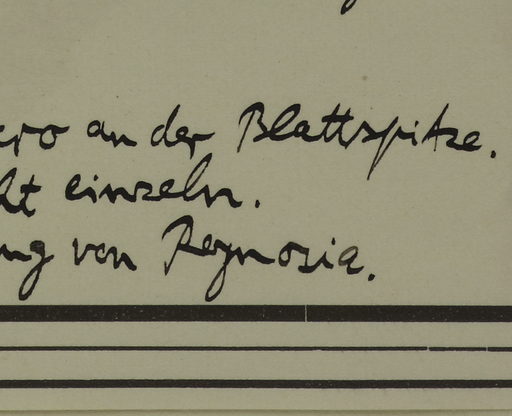 ero an der Blattspitze.
ht einzeln.
ng von Reynosia.